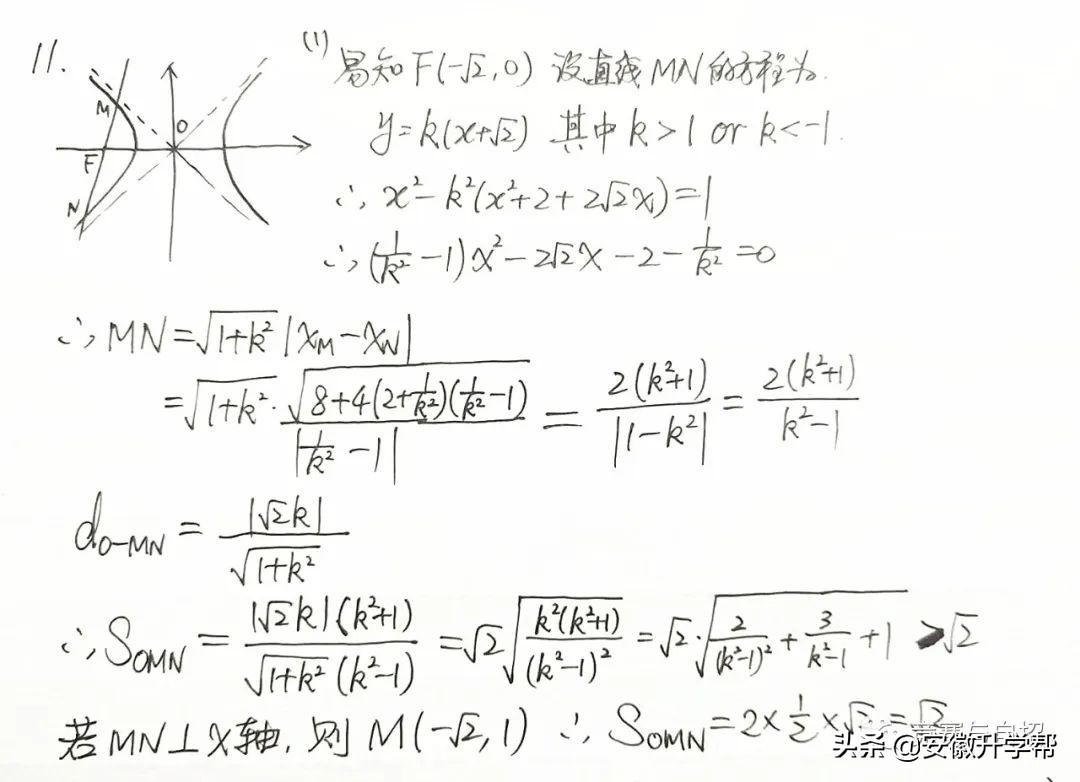 11.
(1) 易知 F(-√2,0) 设直线MN的方程为
y=k(x+√2) 其中 k>1 or k<-1.
∴ x²-k²(x²+2+2√2x)=1
∴ (1/k² -1)x²-2√2x-2-1/k²=0
M
O
F
N
∴ MN=√(1+k²)|x_M-x_N|
=√(1+k²)·√(8+4(2+1/k²)(1/k²-1))/|1/k²-1| = 2(k²+1)/|1-k²| = 2(k²+1)/(k²-1)
d_O-MN = |√2k|/√(1+k²)
∴ S_OMN = |√2k|(k²+1)/(√(1+k²)(k²-1)) = √2√(k²(k²+1)/(k²-1)²) = √2·√(2/(k²-1)²+3/(k²-1)+1) > √2
若MN⊥x轴, 则 M(-√2,1) ∴ S_OMN=2×1/2×√2=√2
头条 @安徽升学帮